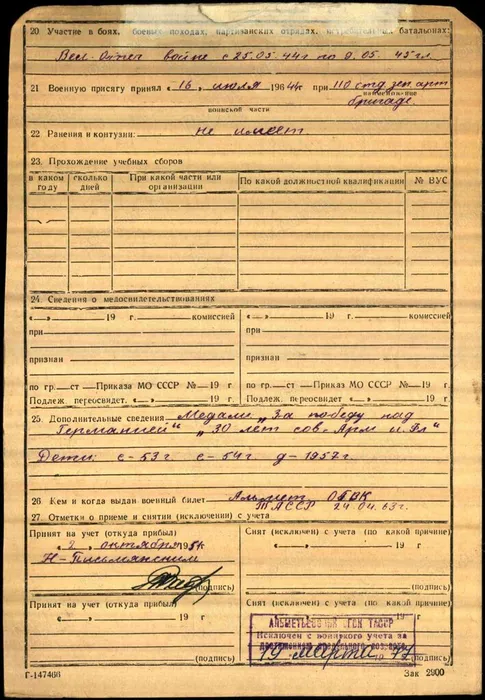 20 Участие в боях, боевых походах, партизанских отрядах, истребительных батальонах:
Вел. Отеч войне с 25.05.44г по 9.05.45гг.
21 Военную присягу принял «16» июля 1944г при 110 стд зен арт
наименование
бригаде
воинской части
22 Ранения и контузии: не имеет
23. Прохождение учебных сборов
в каком году
сколько дней
При какой части или организации
По какой должностной квалификации
№ ВУС
24 Сведения о медосвидетельствованиях
«—» 19 г. комиссией
«—» 19 г. комиссией
при
при
признан
признан
по гр. ст Приказа МО СССР № 19 г.
по гр. ст Приказа МО СССР № 19 г.
Подлеж. переосвидет. 19 г.
Подлеж. переосвидет. 19 г.
25. Дополнительные сведения Медали „За победу над
Германией“ „30 лет сов. Арм и Фл“
Дети: с-53г. с-54г. д-1957г.
26 Кем и когда выдан военный билет Альмет ОГВК
ТАССР 24.04.63г.
27. Отметки о приеме и снятии (исключении) с учета
Принят на учет (откуда прибыл)
Снят (исключен) с учета (по какой причине)
«2» октября 195 г.
«—» 19 г.
Н-Письмянским
(подпись)
(подпись)
Принят на учет (откуда прибыл)
Снят (исключен) с учета (по какой причине)
«—» 19 г.
АЛЬМЕТЬЕВСКИЙ ОГВК ТАССР
Исключен с воинского учета за
достижением предельного возраста
19 марта 1977
(подпись)
(подпись)
Г-147466
Зак 2900